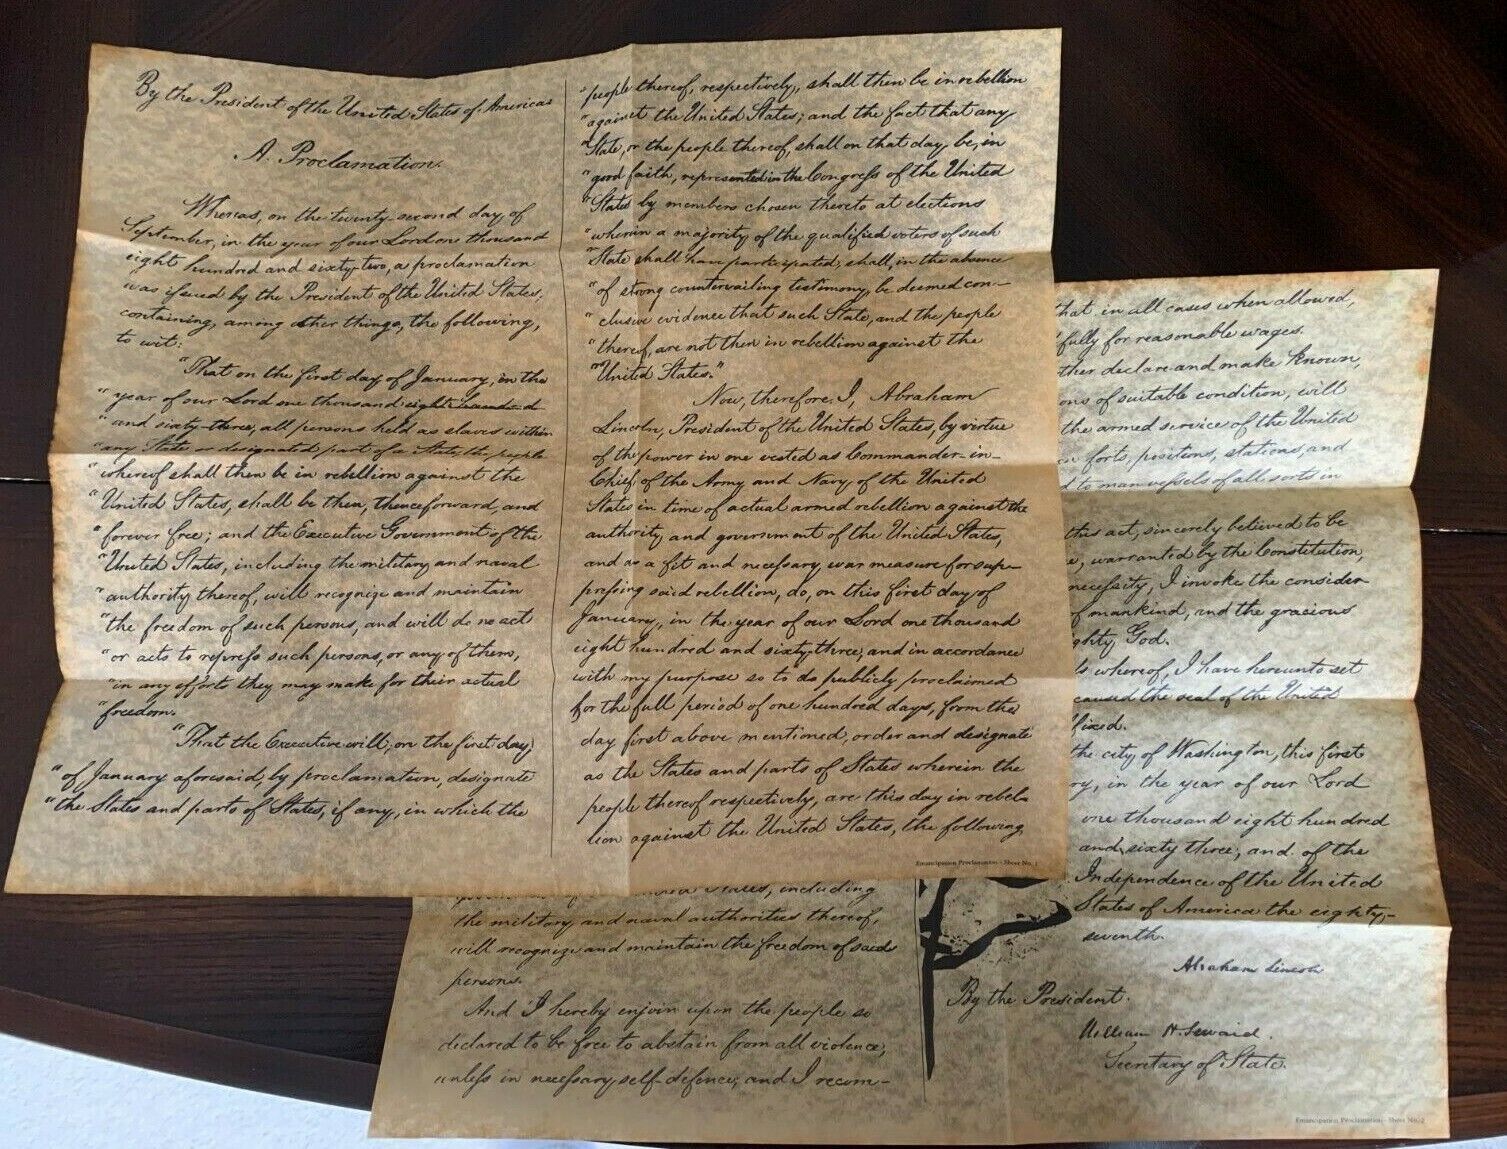 By the President of the United States of America:
A Proclamation.
Whereas, on the twenty-second day of
September, in the year of our Lord one thousand
eight hundred and sixty-two, a proclamation
was issued by the President of the United States,
containing, among other things, the following,
to wit:
"That on the first day of January, in the
"year of our Lord one thousand eight hundred
"and sixty-three, all persons held as slaves within
"any State or designated part of a State, the people
"whereof shall then be in rebellion against the
"United States, shall be then, thenceforward, and
"forever free; and the Executive Government of the
"United States, including the military and naval
"authority thereof, will recognize and maintain
"the freedom of such persons, and will do no act
"or acts to repress such persons, or any of them,
"in any efforts they may make for their actual
"freedom.
"That the Executive will, on the first day,
"of January aforesaid, by proclamation, designate
"the States and parts of States, if any, in which the
"people thereof, respectively, shall then be in rebellion
"against the United States; and the fact that any
"State, or the people thereof, shall on that day, be, in
"good faith, represented in the Congress of the United
"States by members chosen thereto at elections
"wherein a majority of the qualified voters of such
"State shall have participated, shall, in the absence
"of strong countervailing testimony, be deemed con-
"clusive evidence that such State, and the people
"thereof, are not then in rebellion against the
"United States."
Now, therefore, I, Abraham
Lincoln, President of the United States, by virtue
of the power in me vested as Commander-in-
Chief, of the Army and Navy of the United
States in time of actual armed rebellion against the
authority and government of the United States,
and as a fit and necessary war measure for sup-
pressing said rebellion, do, on this first day of
January, in the year of our Lord one thousand
eight hundred and sixty-three, and in accordance
with my purpose so to do publicly proclaimed
for the full period of one hundred days, from the
day first above mentioned, order and designate
as the States and parts of States wherein the
people thereof respectively, are this day in rebel-
lion against the United States, the following,
Emancipation Proclamation - Sheet No. 1
States, including
the military and naval authorities thereof,
will recognize and maintain the freedom of said
persons.
And I hereby enjoin upon the people so
declared to be free to abstain from all violence,
unless in necessary self-defence; and I recom-
that, in all cases when allowed,
fully for reasonable wages.
declare and make known,
of suitable condition, will
the armed service of the United
forts, positions, stations, and
to man vessels of all sorts in
this act, sincerely believed to be
warranted by the Constitution,
necessity, I invoke the consider-
of mankind, and the gracious
God.
whereof, I have hereunto set
caused the seal of the United
the city of Washington, this first
in the year of our Lord
one thousand eight hundred
and sixty three, and of the
Independence of the United
States of America the eighty-
seventh.
Abraham Lincoln
By the President:
William H. Seward,
Secretary of State.
Emancipation Proclamation - Sheet No. 2